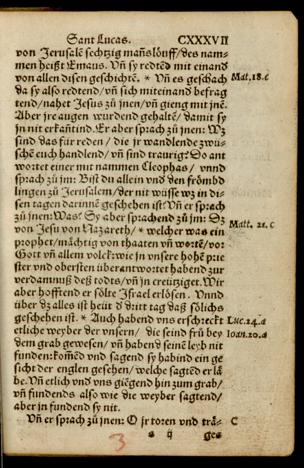 Sant Lucas. CXXXVII
von Jerusalē sechtzig mañslöuff/ des nam-
men heißt Emaus. Vñ sy redtēd mit einand
von allen disen geschichtē. * Vñ es geschach
da sy also redtend/ vñ sich miteinand befrag
tend/ nahet Jesus zů jnen/ vñ gieng mit jnē.
Aber jre augen wurdend gehaltē/ damit sy
jn nit erkañtind. Er aber sprach zů jnen: Wz
sind das für reden/ die jr wandlende zwü-
schē euch handlend/ vñ sind traurig? Do ant
wortet einer mit nammen Cleophas/ vnnd
sprach zů jm: Bist du allein vnd den frömbd
lingen zů Jerusalem/ der nit wüsse wz in di-
sen tagen darinnē geschehen ist? Vñ er sprach
zů jnen: Was? Sy aber sprachend zů jm: Dz
von Jesu von Nazareth/ * welcher was ein
prophet/ mächtig von thaaten vñ wortē/ vor
Gott vñ allem volck: wie jn vnsere hohē prie
ster vnd obersten überantwortet habend zur
verdamnuß deß todts/ vñ jn creützigct. Wir
aber hofftend er sölte Israel erlösen. Vnnd
über dz alles ist heüt d dritt tag daß sölichs
geschehen ist. * Auch habend vns erschreckt
etliche weyber der vnsern/ die seind frü bey
dem grab gewesen/ vñ habend seinē leyb nit
funden: kom̄ēd vnd sagend sy habind ein ge
sicht der englen gesehen/ welche sagtēd er lä
be. Vñ etlich vnd vns giengend hin zum grab/
vñ fundends also wie die weyber sagtend/
aber jn fundend sy nit.
Vñ er sprach zů jnen: O jr toren vnd trä-
s ij ges
Mat. 18. c
Matt. 21. c
Luc. 24. a
Ioan. 20. a
C
3